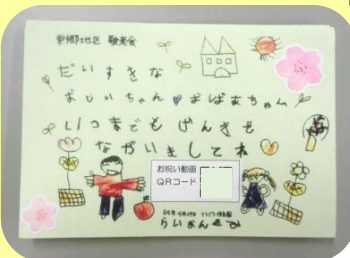 東郷地区 敬老会
だいすきな
おじいちゃん おばあちゃん
いつまでもげんきで
ながいきしてね
お祝い動画
QRコード
らいおんぐみ